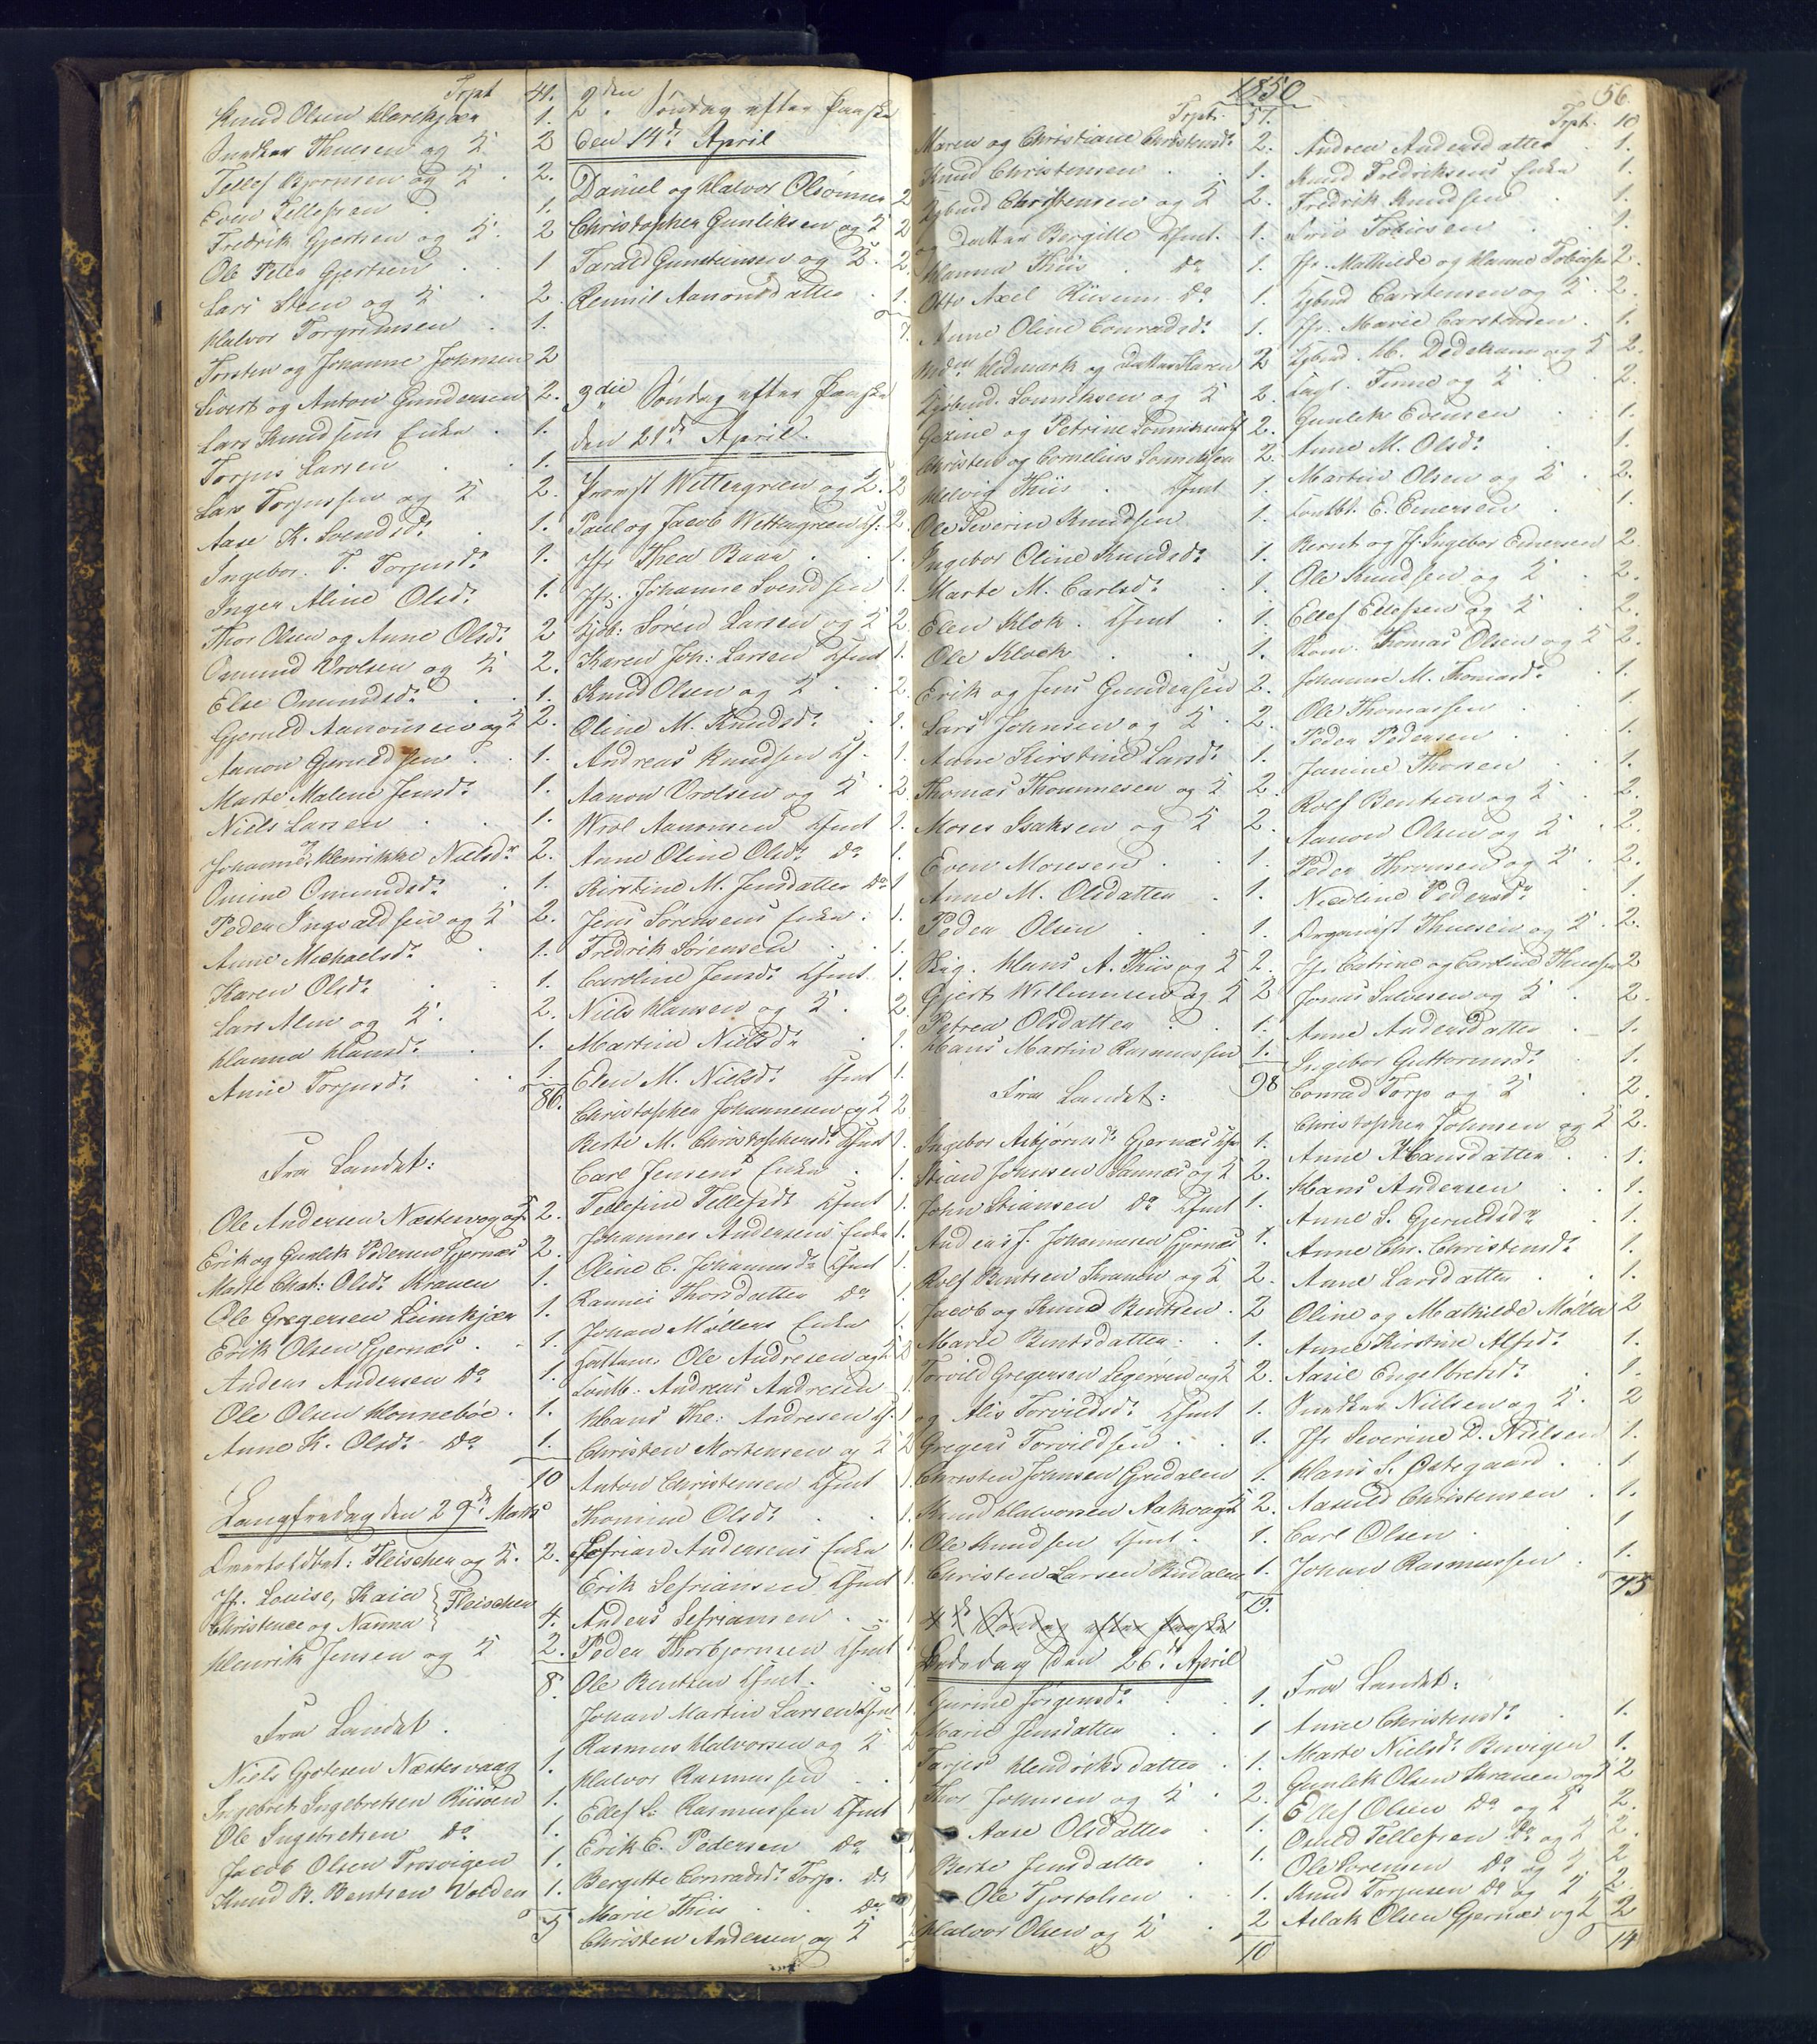 Trpt 41.
Knud Olsen Hareskjær 1.
Snedker Thuesen og K 2
Tellef Bjørnsen og K. 2.
Even Tellefsen 1.
Fredrik Gjertsen og K. 2
Ole Peter Gjertsen 1
Lars Steen og K 2.
Halvor Torgrimsen 1.
Torsten og Johanne Johnsen 2
Sivert og Anton Gundersen 2.
Lars Knudsens Enke 1.
Torjus Larsen 1.
Lars Torjussen og K 2.
Aase K. Svendsdr 1.
Ingebor. T. Torjusdr 1.
Inger Aline Olsdr 1.
Thor Olsen og Anne Olsdr 2
Omund Vrolsen og K 2.
Else Omundsdr 1.
Gjeruld Aanonsen og K 2.
Aanon Gjeruldsen 1.
Marte Malene Jensdr 1.
Niels Larsen 1.
Johanne og Henrikke Nielsdr 2.
Omine Omundsdr 1.
Peder Ingvaldsen og K 2.
Anne Michaelsdr 1.
Karen Olsdr 1.
Lars Alm og K. 2.
Hanna Hansdr 1.
Anne Torjusdr 1.
86.
Fra Landet:
Ole Andersen Næstesvog og K 2.
Erik og Gunlek Pedersen Gjernæs 2.
Marte Chat: Olsdr Kranen 1.
Ole Gregersen Liimkjær 1.
Erik Olsen Gjernæs 1.
Anders Andersen Do 1.
Ole Olsen Honnebøe 1.
Anne K. Olsdr Do 1.
10
Langfredag den 29de Marts
Fleischer og K. 2.
Jfr. Louise, Kaia
Christence og Nanna } Fleischer 4.
Henrik Jensen og K 2.
8.
Fra Landet.
Niels Gjotesen Næstesvaag 1.
Ingebret Ingebretsen Riisøen 1.
Ole Ingebretsen Do 1.
Jacob Olsen Torsvigen 1.
Knud B. Bentsen Volden 1.
5
2den Søndag efter Paaske
den 14de April
Daniel og Halvor Olsønner 2
Christopher Gunliksen og K 2
Tarald Gunstensen og K. 2.
Remil Aanonsdatter 1.
7.
3die Søndag efter Paaske
den 21de April.
Provst Wettergreen og K. 2
Paul og Jacob Wettergreen 2.
Jfr Thea Baar 1.
Jfr. Johanne Svendsen 1.
Kjøb: Sørend Larsen og K 2.
Karen Joh: Larsen Kfmt 1.
Knud Olsen og K 2.
Oline M. Knudsdr 1.
Andreas Knudsen 1.
Aanon Vrolsen og K 2.
Wrol Aanonsen Kfmt 1.
Anne Oline Olsdr do 1.
Kirstine M. Jensdatter Do 1
Jens Sørensens Enke 1.
Fredrik Sørensen 1.
Caroline Jensdr Kfmt 1.
Niels Hansen og K. 2.
Martine Nielsdr 1.
Elen M. Nielsdr Kfmt 1.
Christopher Johannesen og K 2
Berte M. Christophersdr Kfmt 1.
Carl Jensens Enke 1.
Tellefine Tellefsdr Kfmt 1.
Johannes Andersens Enke 1.
Oline C. Johannesdr Kfmt 1.
Rannei Thorsdatter Do 1.
Johan Møllers Enke 1.
Ole Andresen og K 2
Andreas Andresen 1.
Hans The: Andresen 1.
Christen Mortensen og K 2
Anton Christensen Kfmt 1.
Thomine Olsdr 1.
Sefrian Andersens Enke 1.
Erik Sefriansen Kfmt 1.
Anders Sefriansen 1
Peder Thorbjørnsen Kfmt 1
Ole Bentsen Kfmt. 1.
Johan Martin Larsen Kfmt 1.
Rasmus Halvorsen og K 2
Halvor Rasmussen 1
Ellef S. Rasmussen Kfmt 1
Erik E. Pedersen Do 1
Bergitte Conradsdr Torp. Do 1
Marie Thiis Do 1
Christen Andersen og K 2
1850
Trpt. 57.
Maren og Christiane Christensdr 2.
Knud Christensen 1.
Kjbmd Christensen og K 2.
og Datter Bergitte Kfmt. 1.
Hanna Thiis Do 1.
Otto Axel Riisum Do 1.
Anne Oline Conradsdr 1.
Hedmark og Datter Karen 2
Kjøbmd. Sonniksen og K 2.
Gezine og Petrine Sonniksen 2.
Christen og Cornelius Sonniksen 2.
Helvig Thiis Kfmt 1.
Ole Severin Knudsen 1.
Ingebor Oline Knudsdr 1.
Marte M. Carlsdr 1.
Elen Klok. Kfmt 1.
Ole Klock 1.
Erik og Jens Gundersen 2.
Lars Johnsen og K. 2.
Anne Kirstine Larsdr 1.
Thomas Thommesen og K 2.
Moses Isaksen og K 2.
Even Mosesen 1.
Anne M. Olsdatter 1.
Peder Olsen 1.
Hans A. Thiis og K 2.
Gjert Willumsen og K 2
Petrea Olsdatter 1.
Hans Martin Rasmussen 1.
98
Fra Landet:
Ingebor Asbjørnsdr Gjernæs 1.
Stian Johnsen Sannæs og K 2.
John Stiansen Do Kfmt 1.
Anders J. Johannesen Gjernæs 1.
Rolf Bentsen Kranen og K 2.
Jacob og Knud Bentsen 2
Marie Bentsdatter 1.
Torvild Gregersen Legerveien og K 2.
og Alis Torvildsdr Kfmt 1.
Gregers Torvildsen 1.
Christen Johnsen Gredalen 1.
Knud Halvorsen Aakvaag og K 2.
Ole Knudsen Kfmt 1.
Christen Larsen Rødalen 1.
19.
4de Søndag efter Paaske
Bededag den 26de April
Gurine Jørgensdr 1.
Marie Jensdatter 1
Tarjer Hendriksdatter 1.
Thor Johnsen og K 2.
Aase Olsdatter 1.
Berte Jensdatter 1.
Ole Tjostolsen 1.
Halvor Olsen og K. 2
10
56.
Trpt. 10
Andrea Andersdatter 1.
Knud Fredriksens Enke 1.
Fredrik Knudsen 1.
Tobiesen 1.
Jfr. Mathilde og Hanne Tobiesen 2.
Kjbmd Carstensen og K. 2.
Jfr. Marie Carstensen 1.
Kjbmd. M. Dedekam og K 2.
Finne og K 2.
Gunlek Edensen 1.
Anne M. Olsdr 1.
Martin Olsen og K 2.
E. Enersen 1.
Bernt og Jf. Ingebor Enersen 2.
Ole Knudsen og K 2.
Ellef Ellefsen og K 2.
Thomas Olsen og K 2.
Johanne M. Thomasdr 1.
Ole Thomassen 1.
Peder Pedersen 1.
Janine Thorsen 1.
Rolf Bentsen og K 2.
Aanon Olsen og K 2.
Peder Thorsen og K 2.
Nicoline Pedersdr 1.
Organist Thuesen og K. 2.
Jfr Catrine og Caroline Thuesen 2
Jonas Salvesen og K 2.
Anne Andersdatter 1.
Ingebor Guttormsdr 1.
Conrad Torp og K 2.
Christopher Johnsen og K 2.
Anne Hansdatter 1.
Hans Andersen 1.
Anne S. Gjeruldsdr 1.
Anne Chr. Christensdr 1.
Anne Larsdatter 1.
Oline og Mathilde Møller 2
Anne Kirstine Alfsdr 1.
Aasil Engelbretsdr 1.
Snedker Nielsen og K. 2
Jfr Severine D. Nielsen 1.
Hans S. Østegaard 1
Aanild Christensen 1.
Carl Olsen 1
Johan Rasmussen 1.
75
Fra Landet:
Anne Christensdr 1.
Marte Nielsdr Buvigen 1.
Gunlek Olsen Kranen og K 2
Ellef Olsen Do og K 2.
Osuld Tellefsen Do og K 2.
Ole Sørensen Do og K 2
Knud Torjusen Do og K 2.
Aslak Olsen Gjernæs og K 2
14